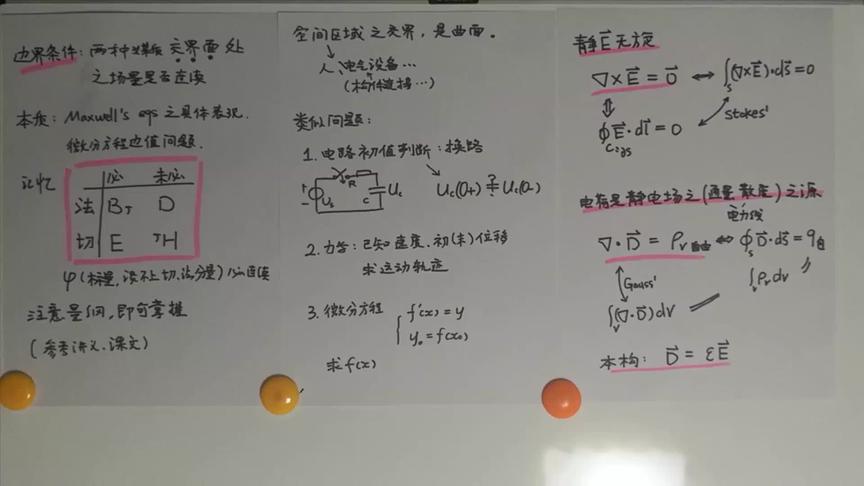 边界条件：两种媒质交界面处
之场量是否连续
本质：Maxwell's eqs 之具体表现.
微分方程边值问题.
记忆
必 未必
法 B J D
切 E J H
φ(标量,谈不上切、法分量)必连续
注意量纲,即可掌握
(参考讲义、课文)
空间区域之交界，是曲面。
人、电气设备…
(构件连接…)
类似问题：
1. 电路初值判断：换路
+ - Us R C Uc
Uc(0+) ≟ Uc(0-)
2. 力学：已知速度、初(末)位移
求运动轨迹
3. 微分方程
f'(x) = y
y₀ = f(x₀)
求 f(x)
静E⃗无旋
∇×E⃗ = 0⃗ ↔ ∫ₛ(∇×E⃗)·dS⃗ = 0
⇕ Stokes'
∮E⃗·dl⃗ = 0
C=∂S
电荷是静电场之(通量、散度)之源
电力线
∇·D⃗ = ρᵥ自由 ⇔ ∮ₛD⃗·dS⃗ = q自
Gauss' ∫ᵥρᵥdV
∫ᵥ(∇·D⃗)dV
本构：D⃗ = εE⃗